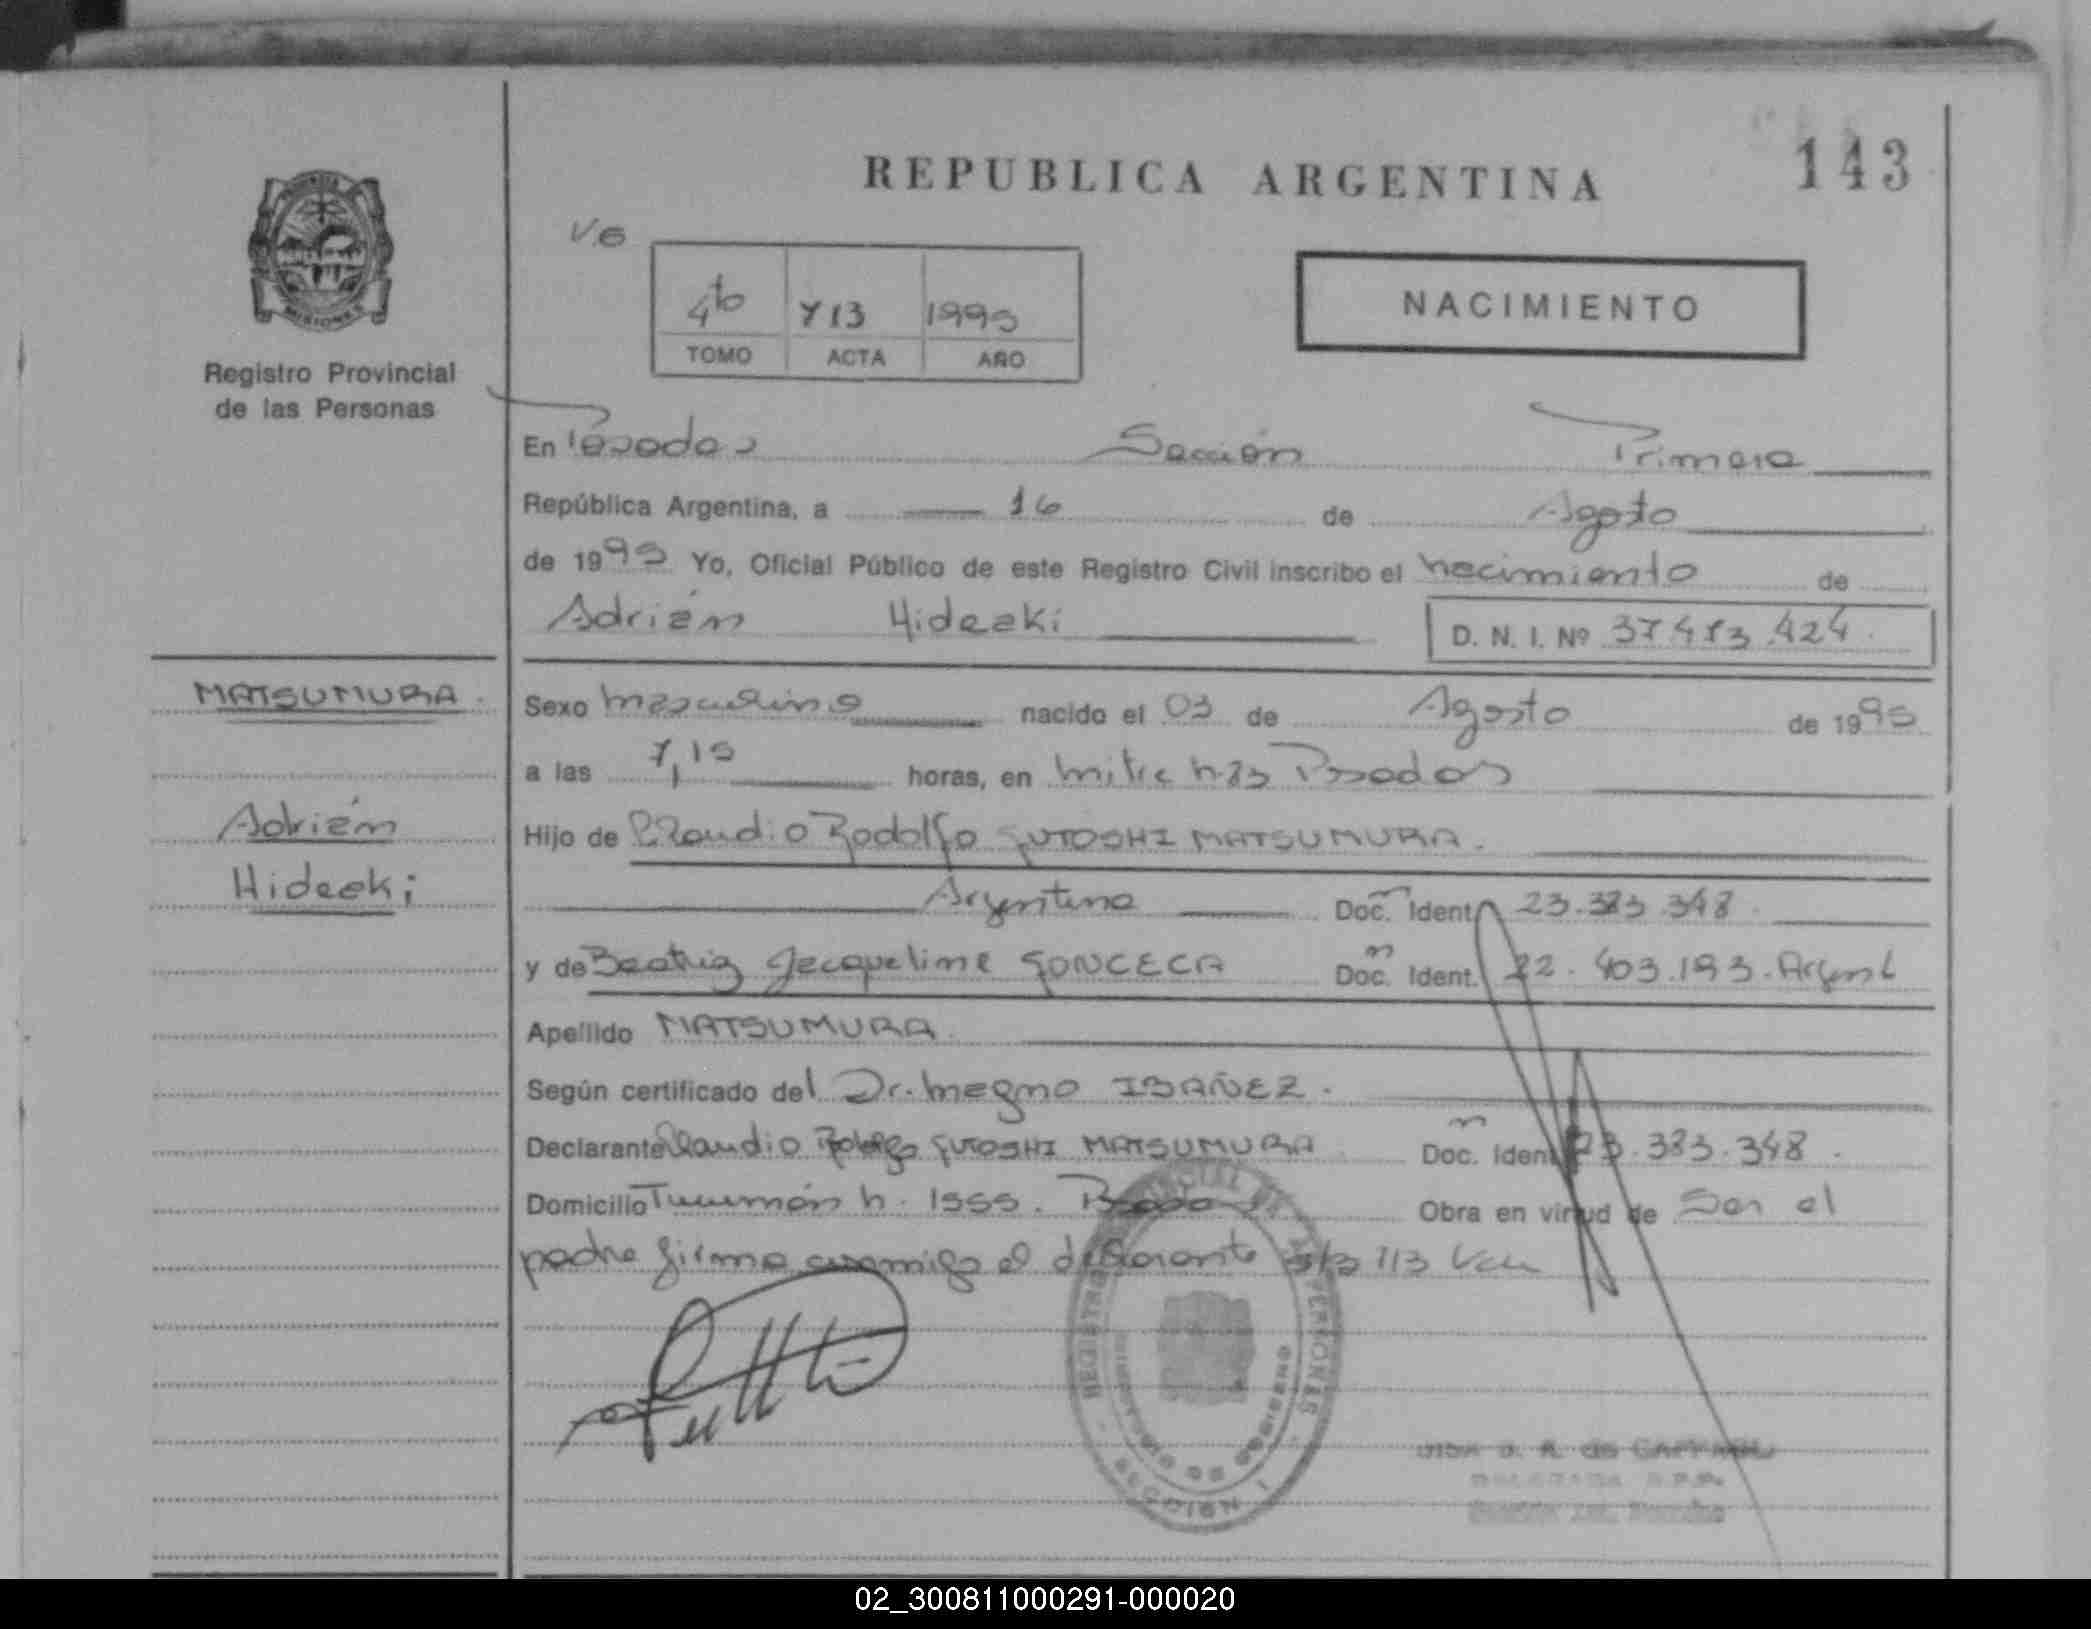 143
REPUBLICA ARGENTINA
NACIMIENTO
4to 713 1993
TOMO ACTA AÑO
MISIONES
Registro Provincial
de las Personas
En Posadas Sección Primera
República Argentina, a 16 de Agosto
de 1993 Yo, Oficial Público de este Registro Civil inscribo el nacimiento de
Adrián Hideaki D. N. I. Nº 37.473.424
MATSUMURA
Adrián
Hideaki
Sexo masculino nacido el 03 de Agosto de 1993
a las 7,15 horas, en mitre Posadas
Hijo de Claudio Rodolfo GUTOSHI MATSUMURA.
Argentino Doc. Ident. 23.383.348
y de Beatriz Jacqueline GONCECA Doc. Ident. 22.403.193. Argent
Apellido MATSUMURA.
Según certificado del Dr. magno IBAÑEZ.
Declarante Claudio Rodolfo GUTOSHI MATSUMURA Doc. Ident. 23.383.348.
Domicilio Tucumán n. 1555. Posadas Obra en virtud de Ser el
padre firma conmigo el declarante
REGISTRO PROVINCIAL DE LAS PERSONAS
MINISTERIO DE GOBIERNO
SECCION I
02_300811000291-000020